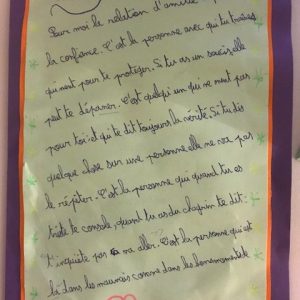 Pour moi la relation d'amitié
la confiance. C'est la personne avec qui tu traînes
qui ment pour te protéger. Si tu as un soucis, elle
peut te dépaner. C'est quelqu'un qui ne ment pas
pour toi et qui te dit toujours la vérité. Si tu dis
quelque chose sur une personne elle ne va pas
le répéter. C'est la personne qui quand tu es
triste te console, quand tu as du chagrin te dit:
t'inquiète pas ça va aller. C'est la personne qui est
là dans les mauvais comme dans les bons moments de